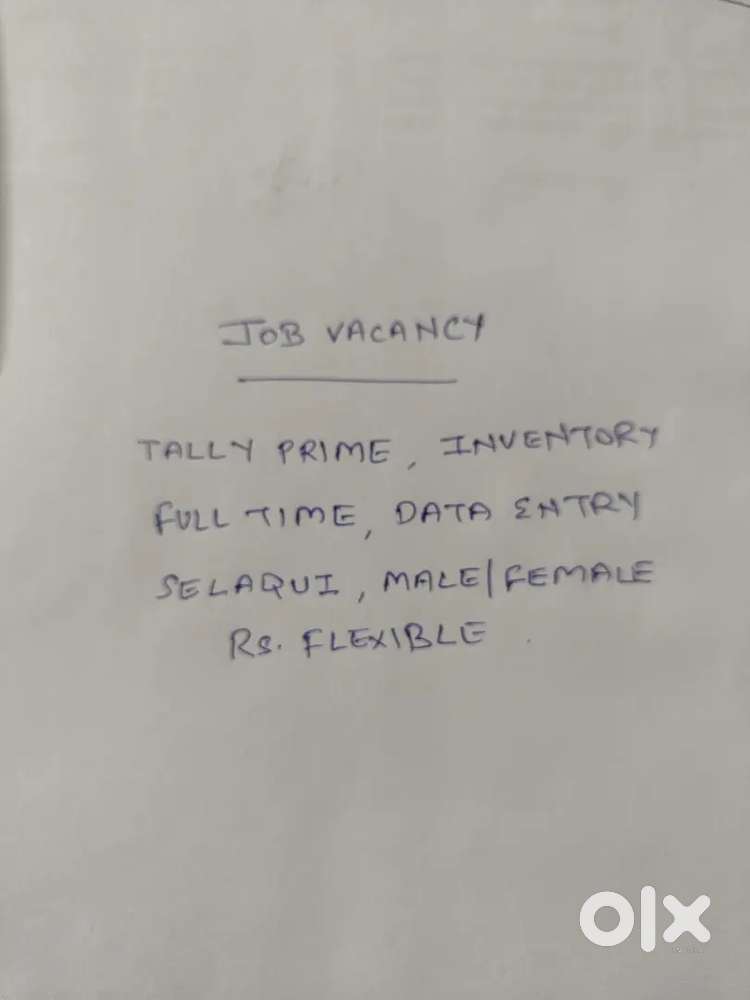 JOB VACANCY
TALLY PRIME, INVENTORY
FULL TIME, DATA ENTRY
SELAQUI, MALE/FEMALE
Rs. FLEXIBLE.
olx